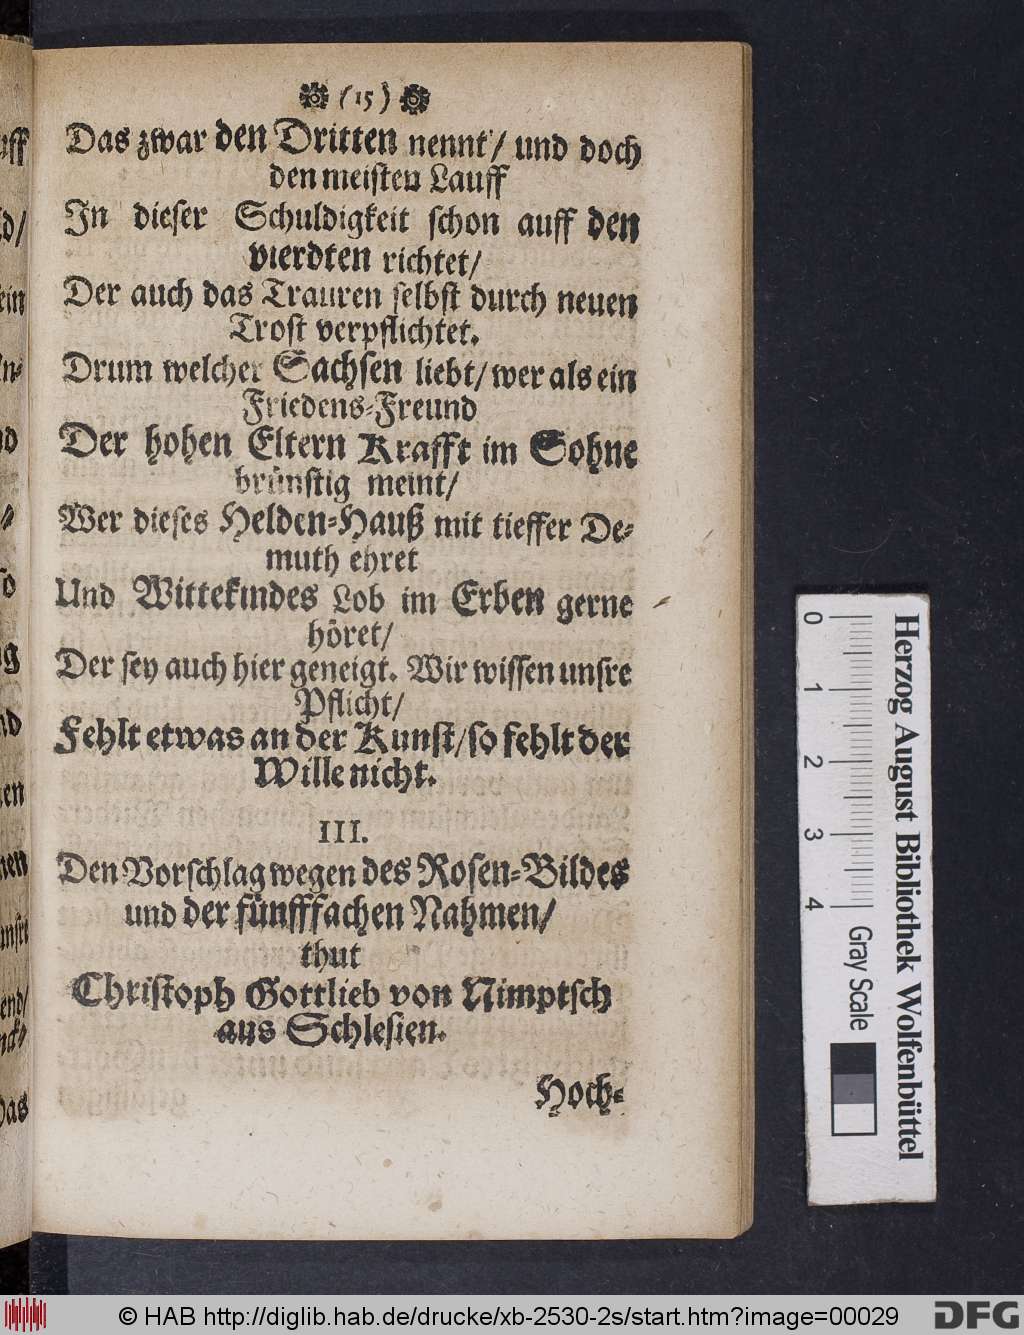 (15)
Das zwar den Dritten nennt'/ und doch
den meisten Lauff
In dieser Schuldigkeit schon auff den
vierdten richtet/
Der auch das Trauren selbst durch neuen
Trost verpflichtet.
Drum welcher Sachsen liebt/ wer als ein
Friedens-Freund
Der hohen Eltern Krafft im Sohne
brünstig meint/
Wer dieses Helden-Hauß mit tieffer De-
muth ehret
Und Wittekindes Lob im Erben gerne
höret/
Der sey auch hier geneigt. Wir wissen unsre
Pflicht/
Fehlt etwas an der Kunst/ so fehlt der
Wille nicht.
III.
Den Vorschlag wegen des Rosen-Bildes
und der fünfffachen Nahmen/
thut
Christoph Gottlieb von Nimptsch
aus Schlesien.
Hoch-
0 1 2 3 4
Herzog August Bibliothek Wolfenbüttel
Gray Scale
© HAB http://diglib.hab.de/drucke/xb-2530-2s/start.htm?image=00029
DFG